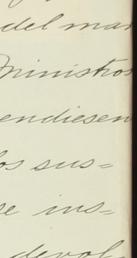 del mar
ministro
endiesen
os sus=
se ins=
devol